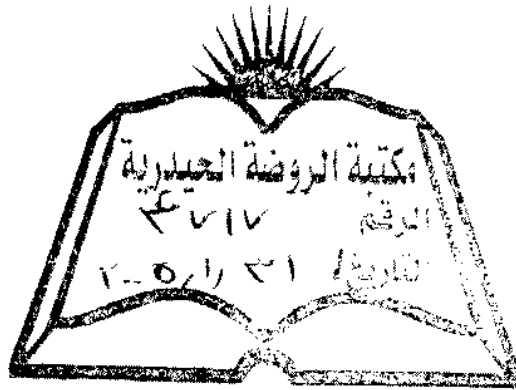 مكتبة الروضة الحيدرية
الرقم ٣٧١٧
التاريخ / ٣١ /١/ ٢٠٠٥